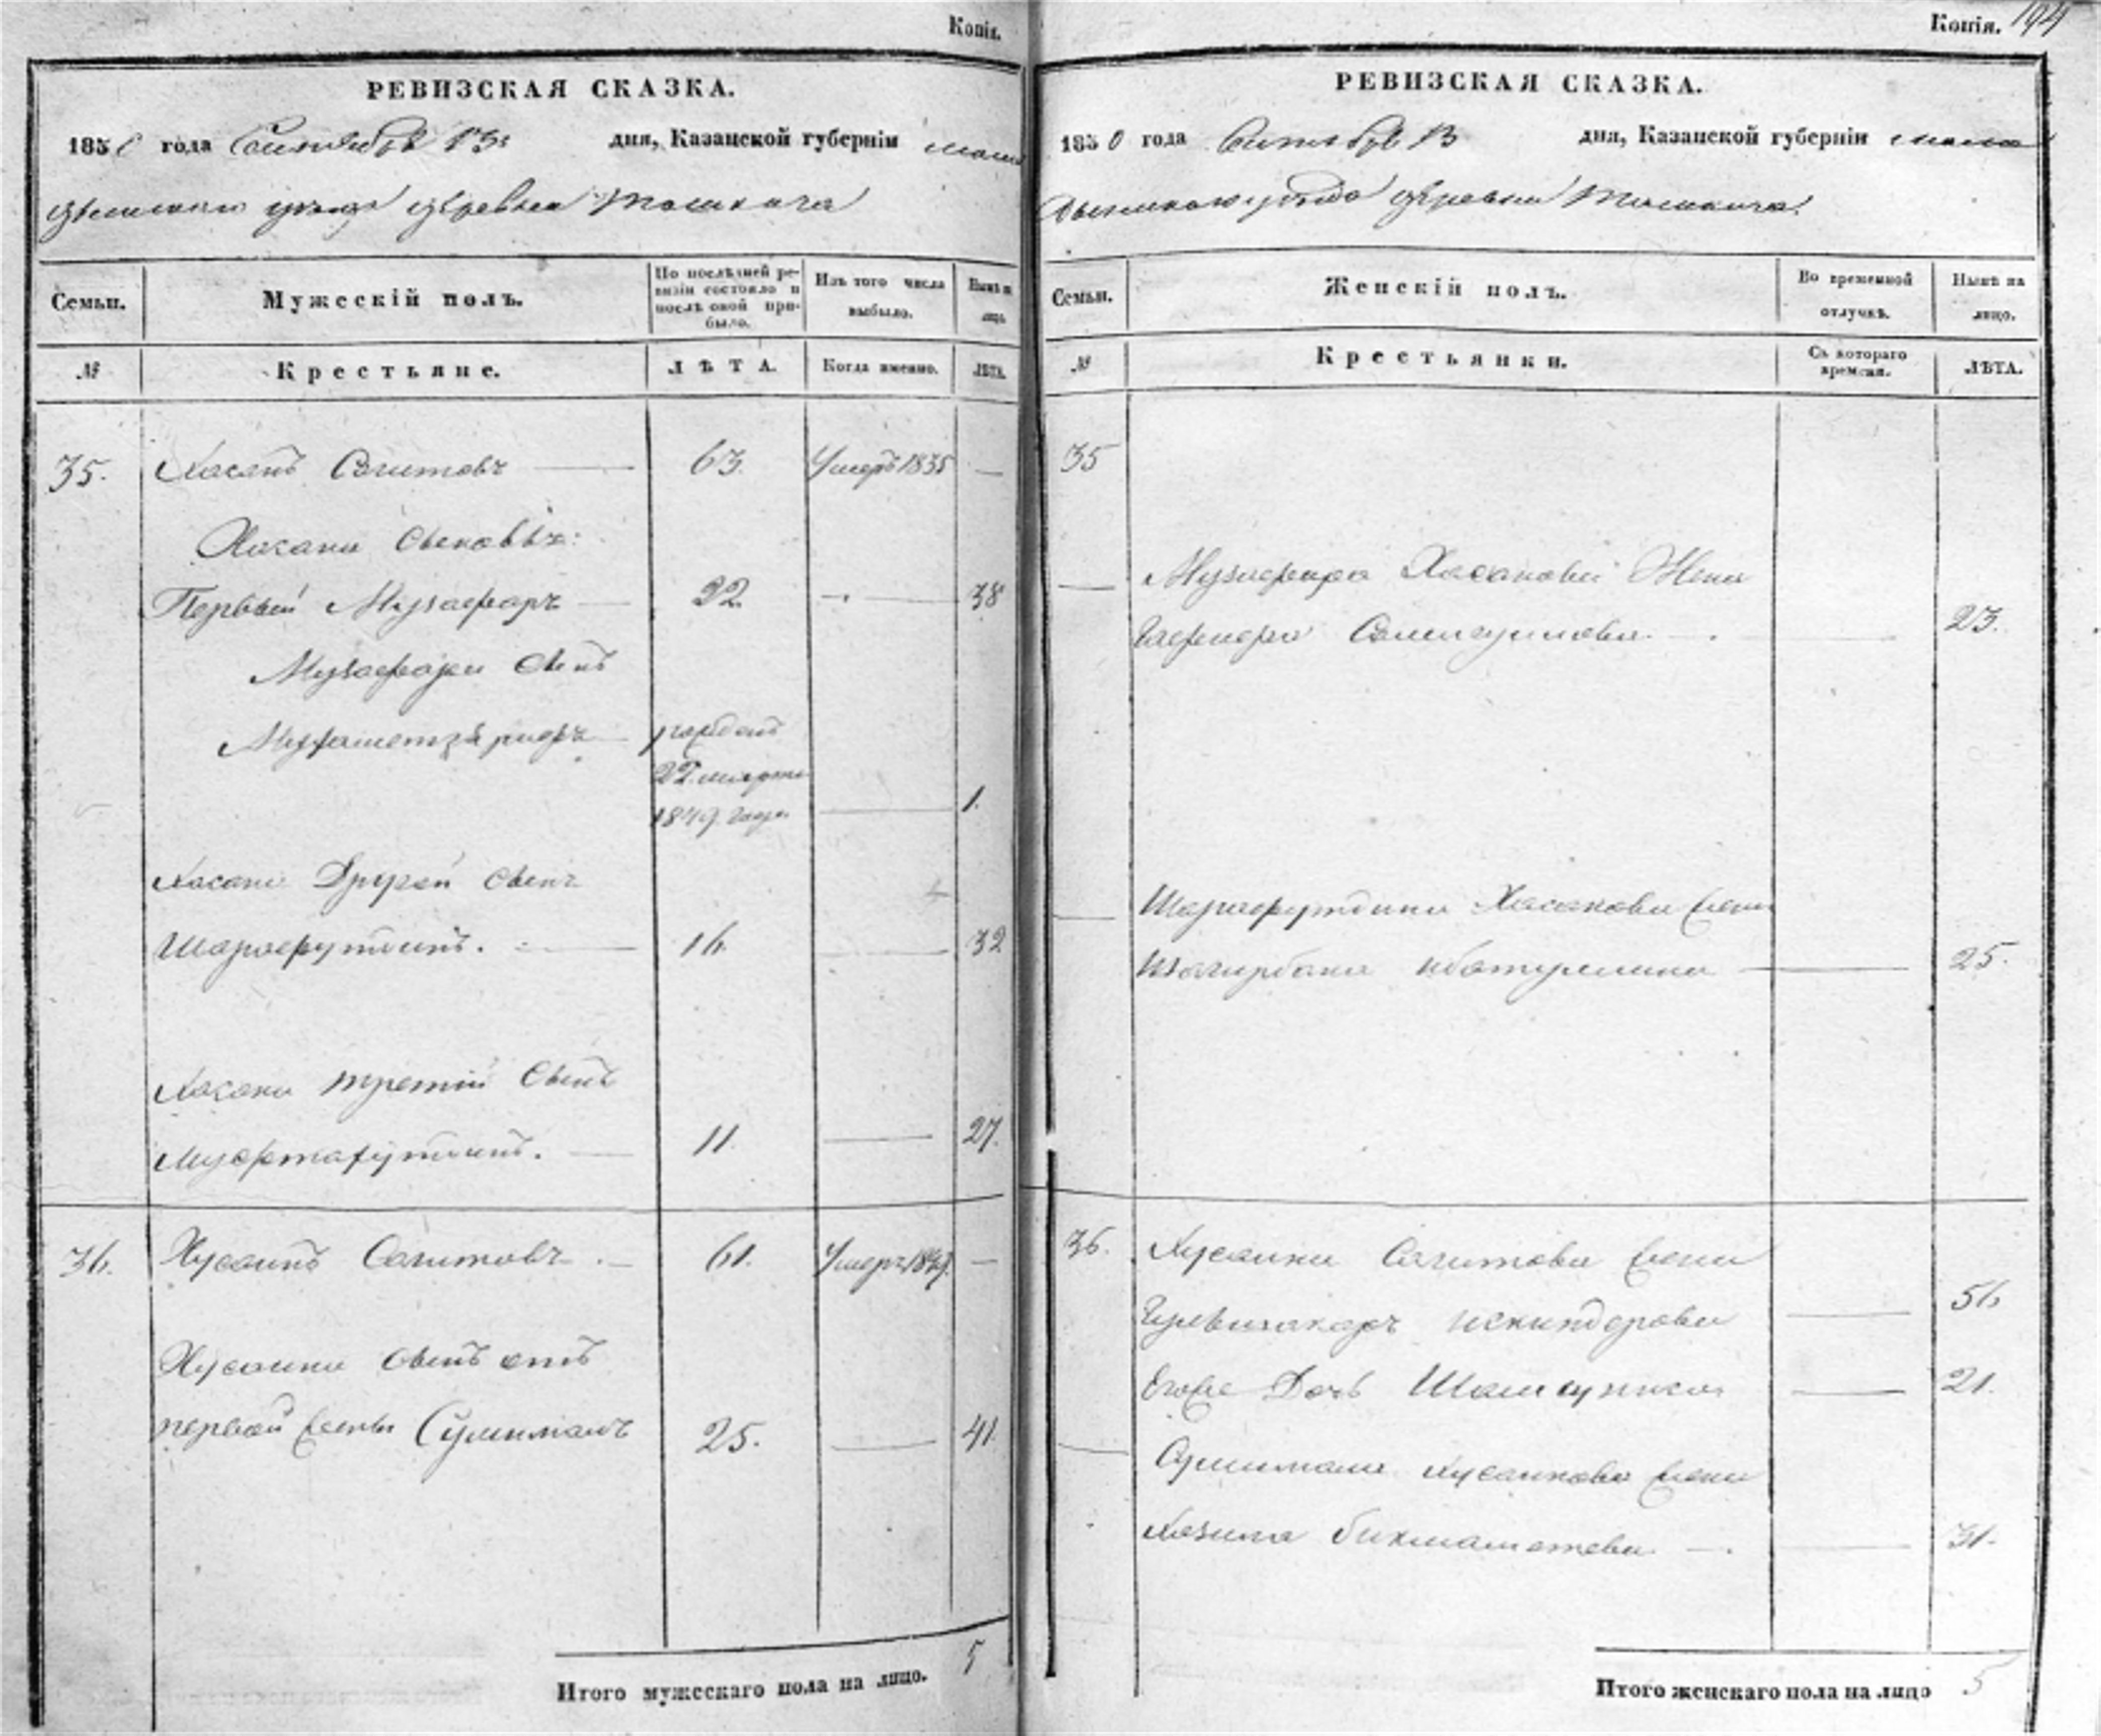 Копія.
РЕВИЗСКАЯ СКАЗКА.
1850 года Сентября 13 дня, Казанской губерніи мама
дышскаго уѣзда деревни
Семьи.
Мужескій полъ.
По послѣдней ре-
визіи состояло и
послѣ оной при-
было.
Изъ того числа
выбыло.
Нынѣ на
лицо.
№
Крестьяне.
ЛѢТА.
Когда именно.
ЛѢТА.
35. Хасанъ Сагитовъ 63. Умеръ 1835 —
Хасана сыновья:
Первый Музафаръ 22. — 38
Музафара сынъ
рожденъ
22 марта
1849 года — 1.
Хасана Другой сынъ
Шарафутдинъ. 16. — 32
Хасана третій сынъ
11. — 27.
36. Хусаинъ Сагитовъ 61. Умеръ 1849. —
Хусаина сынъ отъ
первой жены Сулиманъ 25. — 41.
Итого мужескаго пола на лицо. 5
Копія. 194
РЕВИЗСКАЯ СКАЗКА.
1850 года Сентября 13 дня, Казанской губерніи мама
дышскаго уѣзда деревни
Семьи.
Женскій полъ.
Во временной
отлучкѣ.
Нынѣ на
лицо.
№
Крестьянки.
Съ котораго
времени.
ЛѢТА.
35
Музафара Хасанова Жена
23.
Шарафутдина Хасанова жена
25.
36. Хусаина Сагитова жена
Искиндерова — 56
Дочь — 21.
Сулимана Хусаинова жена
Хазима Бикмаметева — 31.
Итого женскаго пола на лицо 5